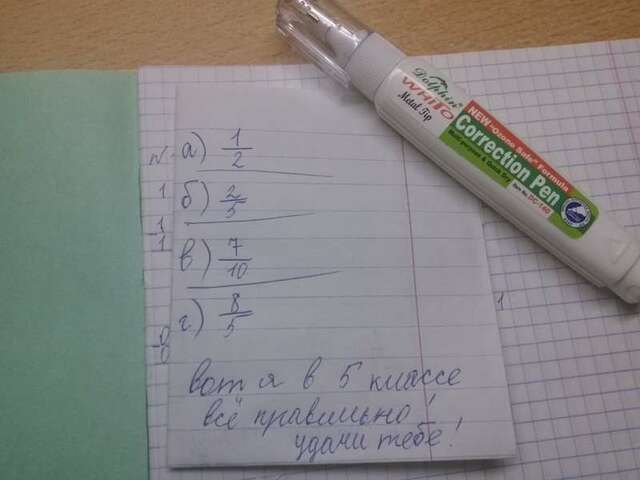 а) 1/2
б) 2/5
в) 7/10
г) 8/5
вот я в 5 классе
всё правильно!
удачи тебе!
Dolphin®
WHITO
Metal Tip
NEW "Ozone Safe" Formula
Correction Pen
1
1
1
0
0
1